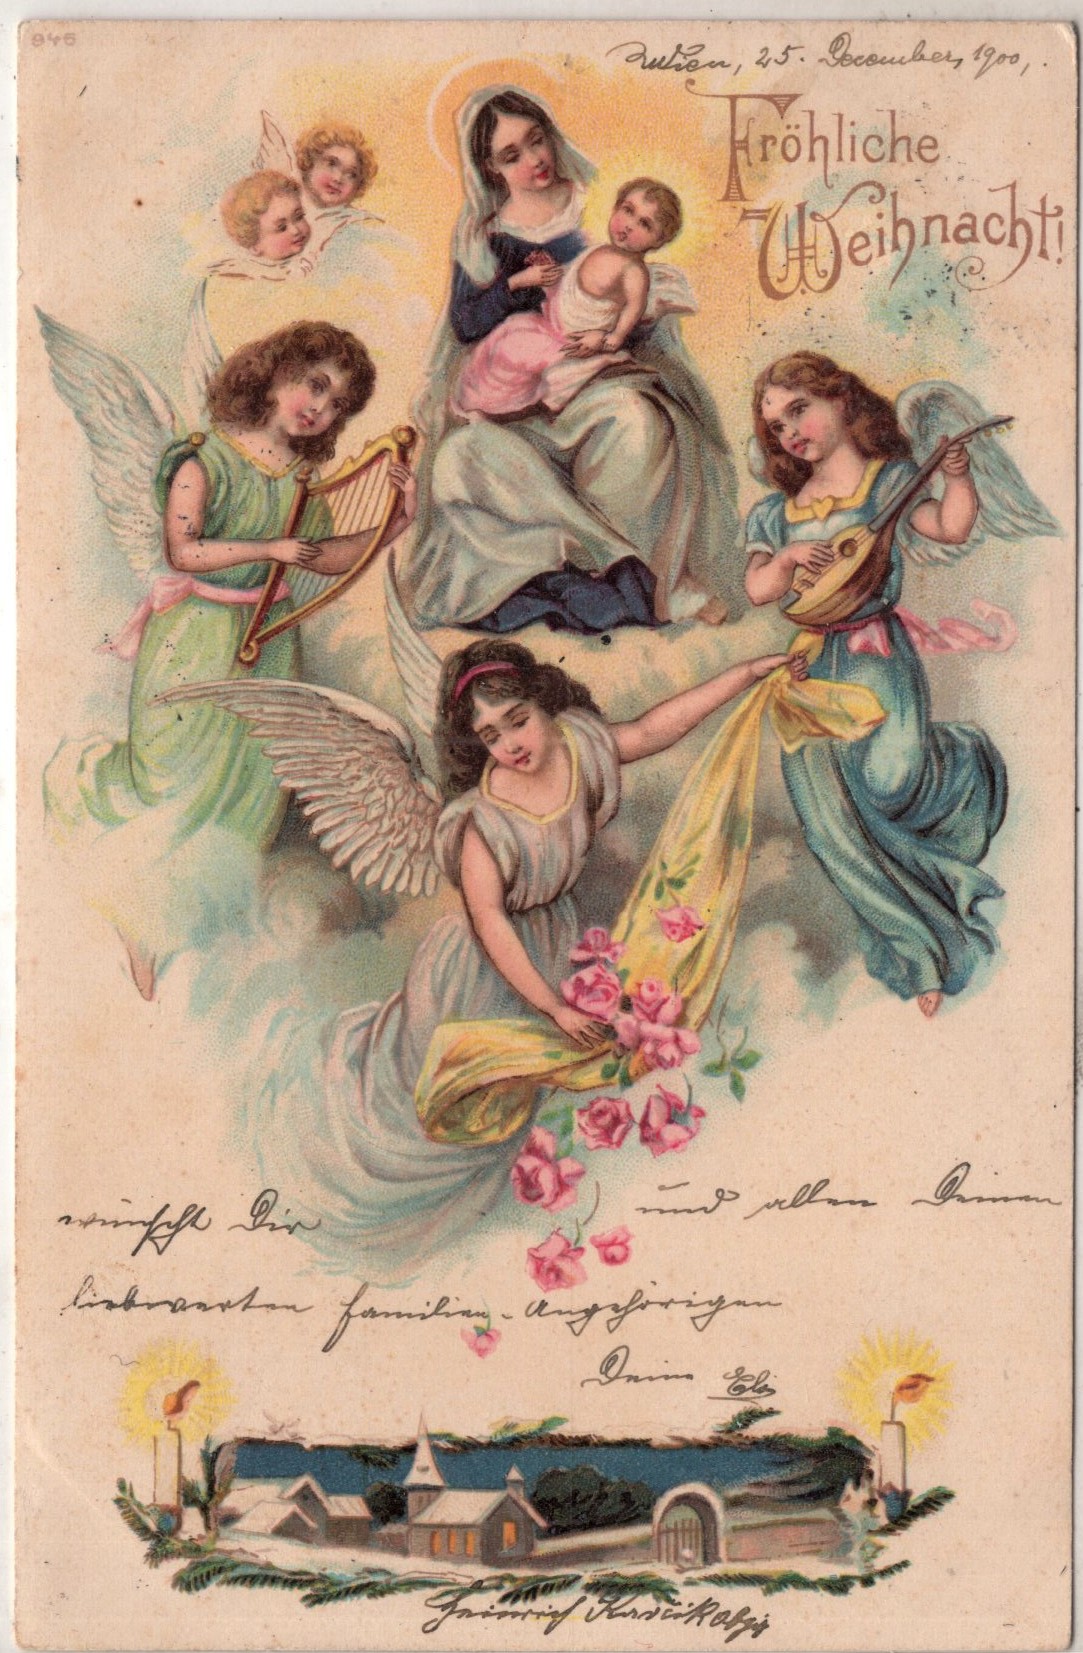 946
Wien, 25. December, 1900,.
Fröhliche
Weihnacht!
wünscht Dir und allen Deinen
liebwerten Familien-Angehörigen
Deine Elis
Heinrich